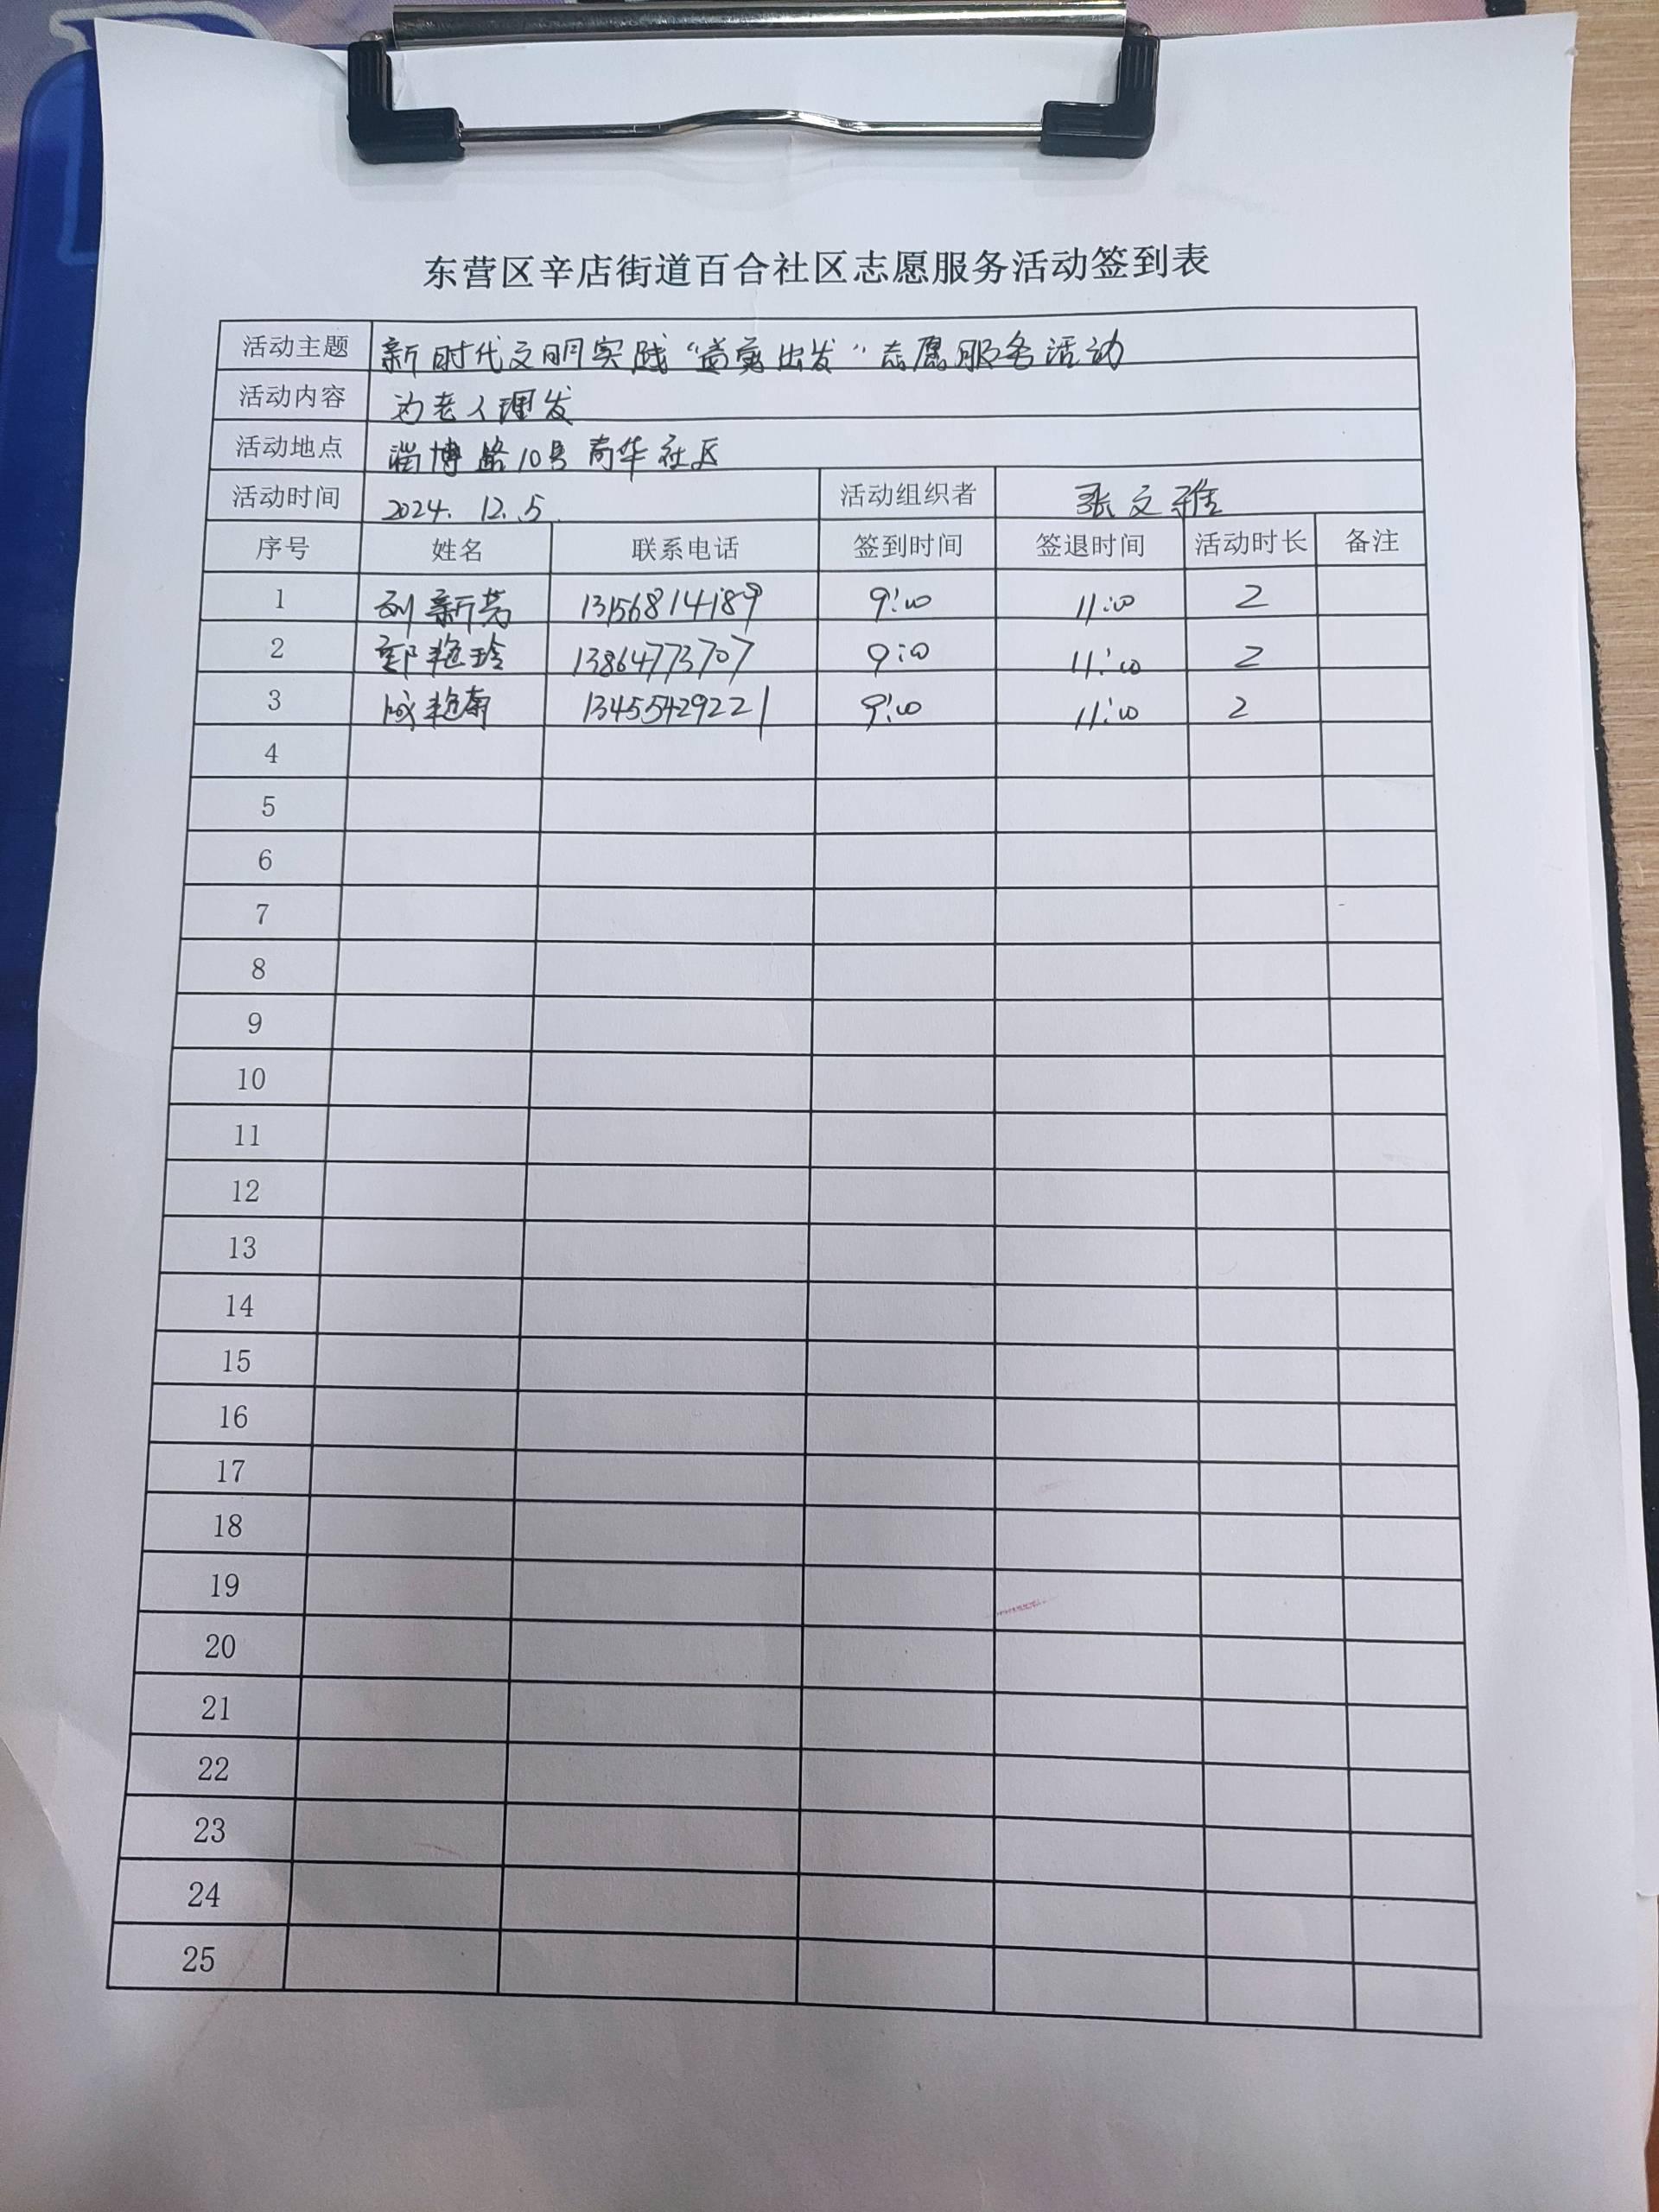 东营区辛店街道百合社区志愿服务活动签到表
活动主题 新时代文明实践“益剪出发”志愿服务活动
活动内容 为老人理发
活动地点 淄博路10号 商华社区
活动时间 2024.12.5 活动组织者 张文雅
序号 姓名 联系电话 签到时间 签退时间 活动时长 备注
1 刘新芳 13156814189 9:00 11:00 2
2 郭艳玲 13864773707 9:00 11:00 2
3 成艳南 13455429221 9:00 11:00 2
4
5
6
7
8
9
10
11
12
13
14
15
16
17
18
19
20
21
22
23
24
25